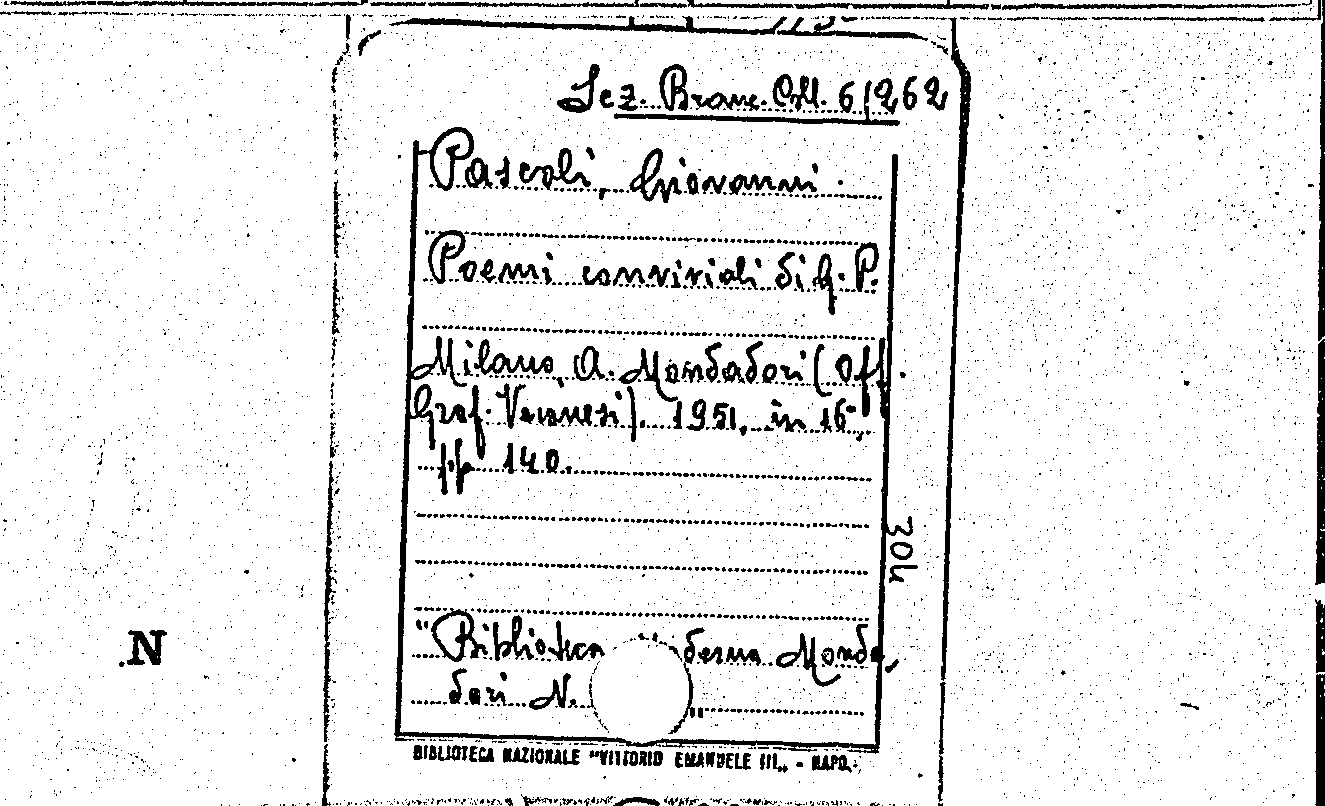 Sez. Branc. Coll. 6/262
Pascoli, Giovanni.
Poemi conviviali di G. P.
Milano, A. Mondadori (Off.
Graf. Veronesi). 1951, in 16°,
pp 140.
304
"Biblioteca derna Monda,
dori N. "
N
BIBLIOTECA NAZIONALE "VITTORIO EMANUELE III„ - NAPO.